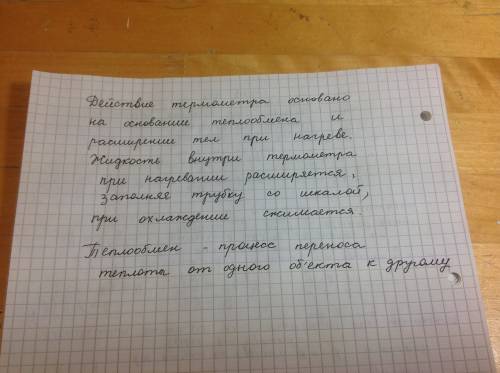 Действие термометра основано
на основание теплообмена и
расширение тел при нагреве.
Жидкость внутри термометра
при нагревании расширяется,
заполняя трубку со шкалой,
при охлаждение сжимается.
Теплообмен - процесс переноса
теплоты от одного об'екта к другому